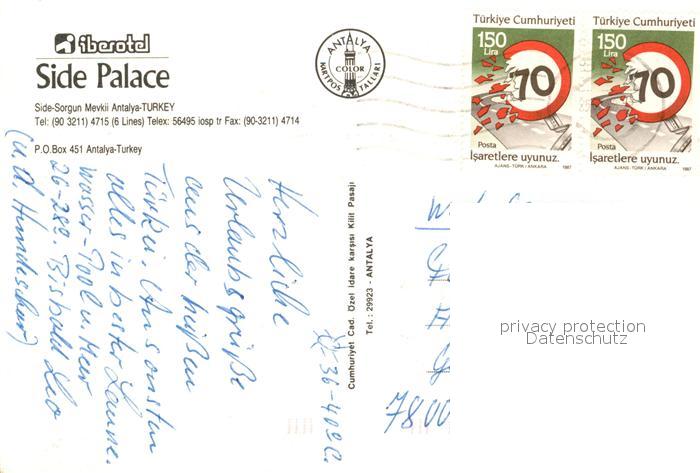 iberotel
Side Palace
Side-Sorgun Mevkii Antalya-TURKEY
Tel: (90 3211) 4715 (6 Lines) Telex: 56495 iosp tr Fax: (90-3211) 4714
P.O.Box 451 Antalya-Turkey
ANTALYA
COLOR
KARTPOSTALLARI
Türkiye Cumhuriyeti
150
Lira
70
Posta
İşaretlere uyunuz.
AJANS-TÜRK / ANKARA 1987
Türkiye Cumhuriyeti
150
Lira
70
Posta
İşaretlere uyunuz.
AJANS-TÜRK / ANKARA 1987
Herzliche
Urlaubsgrüße
aus der heißen
Türkei. Ansonsten
alles in bester Laune.
wasser-Pool u. Meer
26-28º. Bisbald Leo
(u. d.
36-40º C.
Cumhuriyet Cad. Özel İdare karşısı Kilit Pasajı
Tel.: 29923 - ANTALYA
7800
privacy protection
Datenschutz